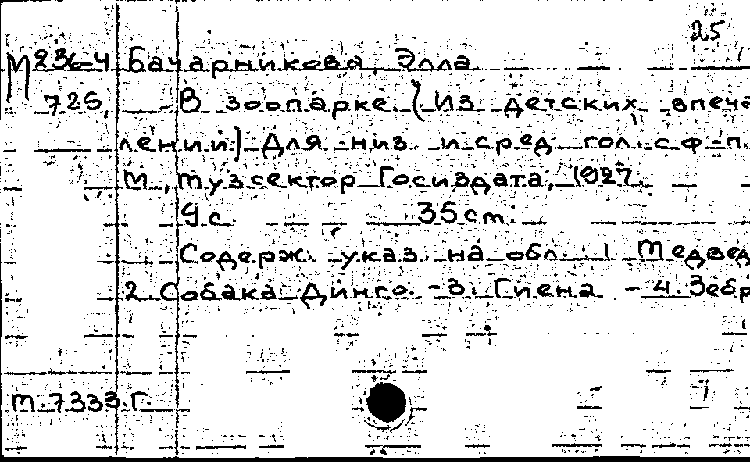 25
М 236-4 Бачарникова, Элла
725, - В зоопарке. (Из детских впеча
лений) Для низ. и сред. гол. с ф-п.
М., Музсектор Госиздата, 1927.
9 с. 35 cm.
Содерж. указ. на обл. 1 Медвед
2. Собака Динго. - 3. Гиена - 4. Зебр
М. 7333 Г.